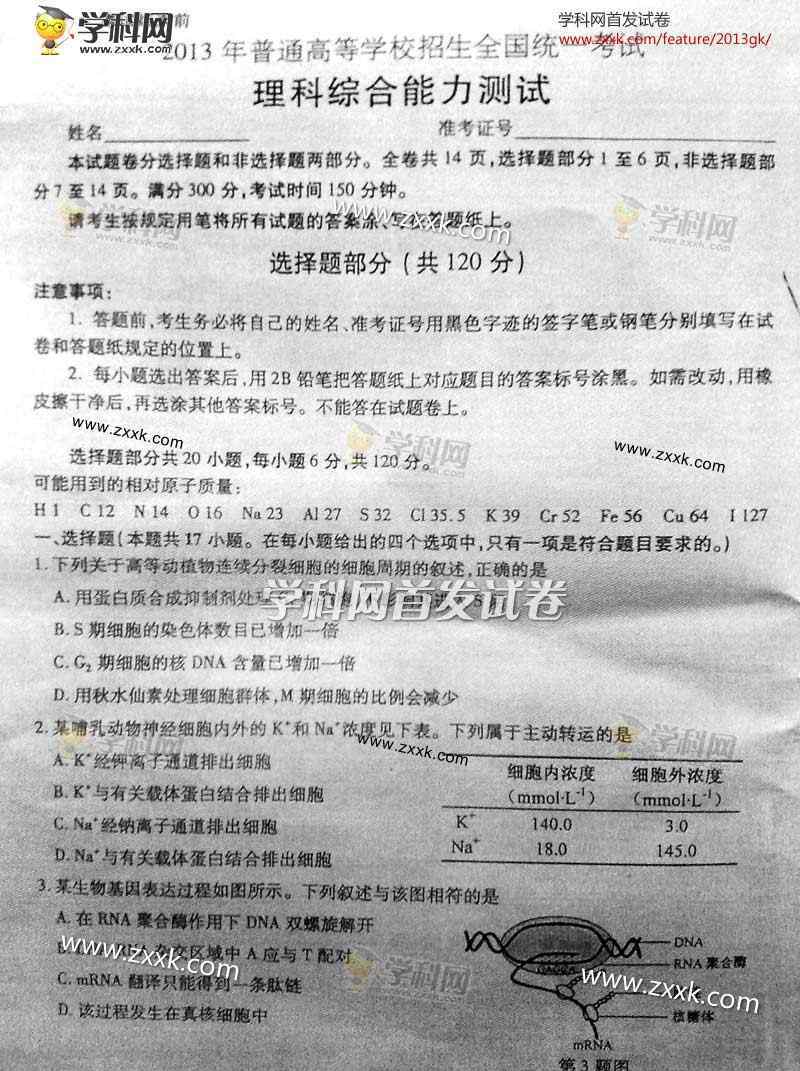 学科网
www.zxxk.com
前
学科网首发试卷
www.zxxk.com/feature/2013gk/
2013年普通高等学校招生全国统一考试
理科综合能力测试
姓名
准考证号
本试题卷分选择题和非选择题两部分。全卷共14页,选择题部分1至6页,非选择题部
分7至14页。满分300分,考试时间150分钟。
请考生按规定用笔将所有试题的答案涂、写在答题纸上。
www.zxxk.com
学科网
www.zxxk.com
选择题部分(共120分)
注意事项:
1. 答题前,考生务必将自己的姓名、准考证号用黑色字迹的签字笔或钢笔分别填写在试
卷和答题纸规定的位置上。
2. 每小题选出答案后,用2B铅笔把答题纸上对应题目的答案标号涂黑。如需改动,用橡
皮擦干净后,再选涂其他答案标号。不能答在试题卷上。
www.zxxk.com
学科网
www.zxxk.com
www.zxxk.com
选择题部分共20小题,每小题6分,共120分。
可能用到的相对原子质量:
H 1 C 12 N 14 O 16 Na 23 Al 27 S 32 Cl 35.5 K 39 Cr 52 Fe 56 Cu 64 I 127
一、选择题(本题共17小题。在每小题给出的四个选项中,只有一项是符合题目要求的。)
1. 下列关于高等动植物连续分裂细胞的细胞周期的叙述,正确的是
A. 用蛋白质合成抑制剂处理
学科网首发试卷
B. S期细胞的染色体数目已增加一倍
C. G₂期细胞的核DNA含量已增加一倍
D. 用秋水仙素处理细胞群体,M期细胞的比例会减少
2. 某哺乳动物神经细胞内外的K⁺和Na⁺浓度见下表。下列属于主动转运的是
www.zxxk.com
学科网
www.zxxk.com
A. K⁺经钾离子通道排出细胞
B. K⁺与有关载体蛋白结合排出细胞
C. Na⁺经钠离子通道排出细胞
D. Na⁺与有关载体蛋白结合排出细胞
细胞内浓度 细胞外浓度
(mmol·L⁻¹) (mmol·L⁻¹)
K⁺ 140.0 3.0
Na⁺ 18.0 145.0
3. 某生物基因表达过程如图所示。下列叙述与该图相符的是
A. 在RNA聚合酶作用下DNA双螺旋解开
杂交区域中A应与T配对
C. mRNA翻译只能得到一条肽链
D. 该过程发生在真核细胞中
www.zxxk.com
学科网
www.zxxk.com
DNA
RNA聚合酶
www.zxxk.com
核糖体
mRNA
第3题图